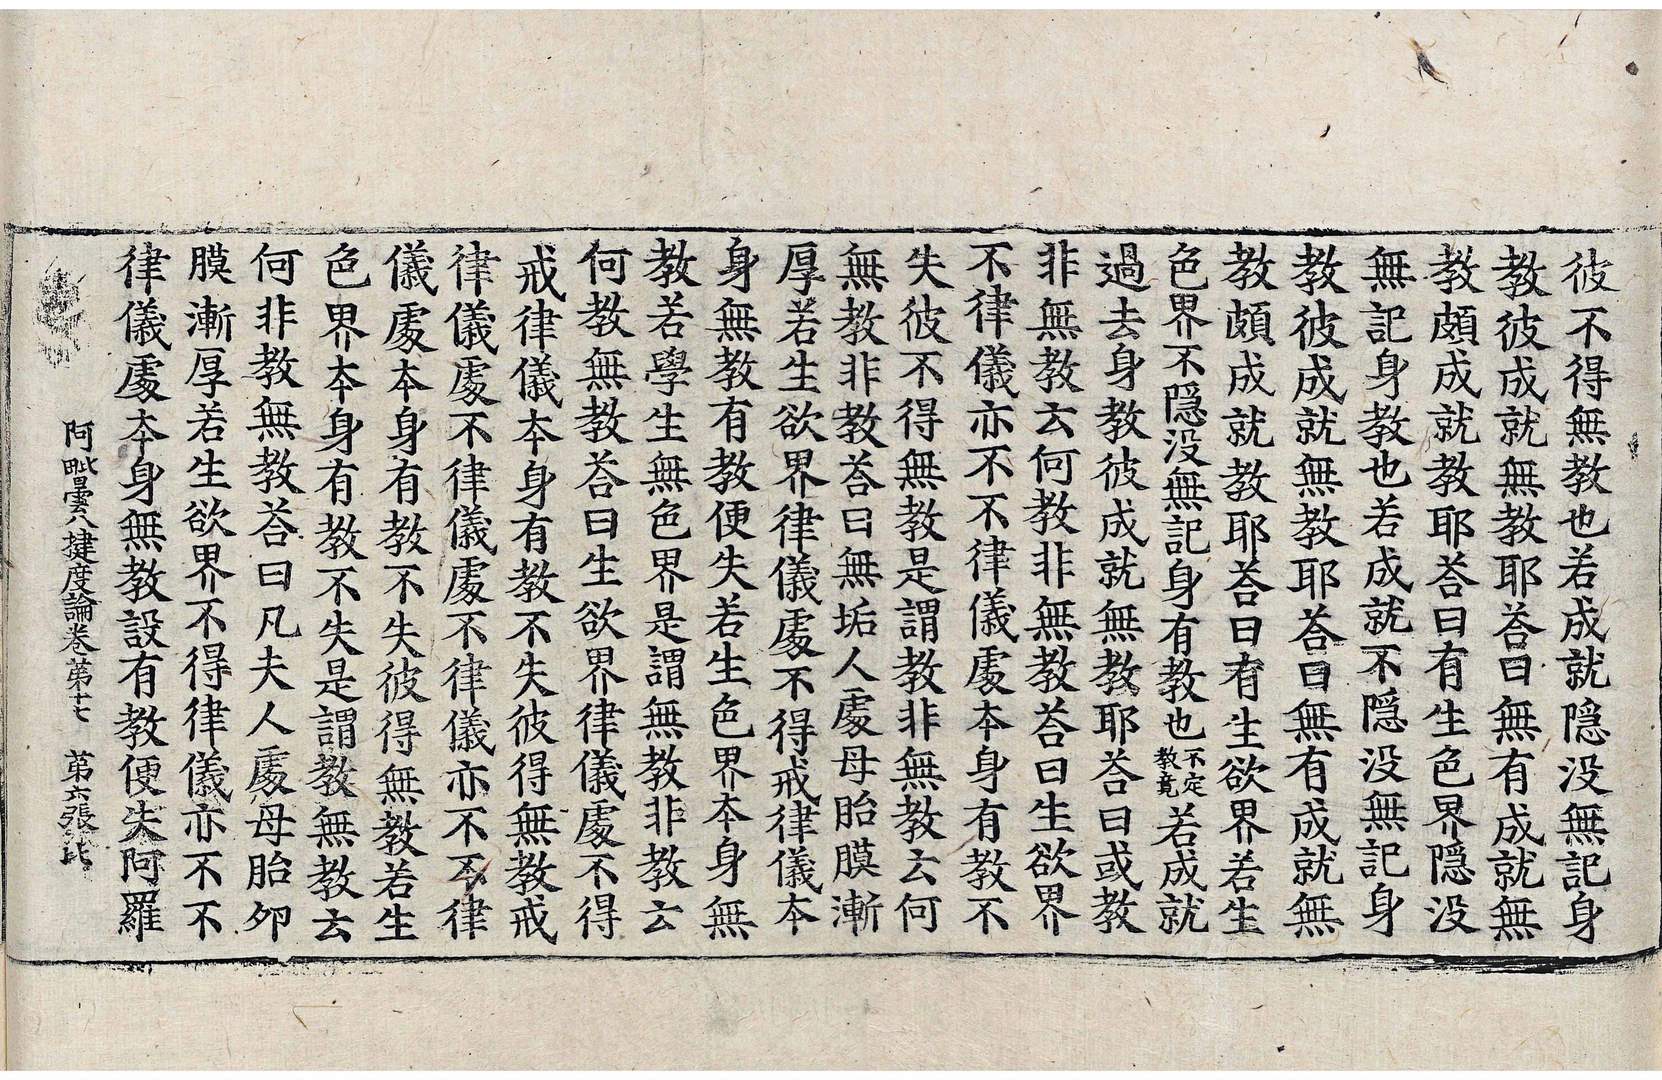 彼不得無教也若成就隠没無記身
教彼成就無教耶荅曰無有成就無
教頗成就教耶荅曰有生色界隠没
無記身教也若成就不隠没無記身
教彼成就無教耶荅曰無有成就無
教頗成就教耶荅曰有生欲界若生
色界不隠没無記身有教也不定教竟若成就
過去身教彼成就無教耶荅曰或教
非無教云何教非無教荅曰生欲界
不律儀亦不不律儀處本身有教不
失彼不得無教是謂教非無教云何
無教非教荅曰無垢人處母胎膜漸
厚若生欲界律儀處不得戒律儀本
身無教有教便失若生色界本身無
教若學生無色界是謂無教非教云
何教無教荅曰生欲界律儀處不得
戒律儀本身有教不失彼得無教戒
律儀處不律儀處不律儀亦不不律
儀處本身有教不失彼得無教若生
色界本身有教不失是謂教無教云
何非教無教荅曰凡夫人處母胎卵
膜漸厚若生欲界不得律儀亦不不
律儀處本身無教設有教便失阿羅
阿毗曇八揵度論卷第十七 第六張